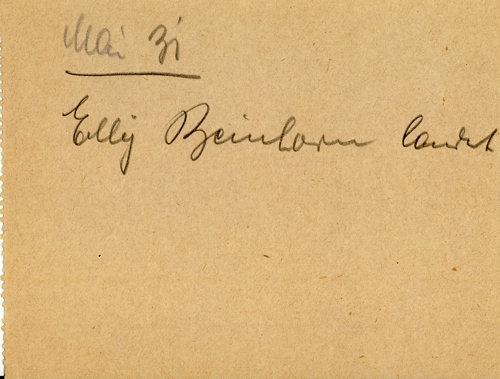 Mai 31
Elly Beinhorn landet